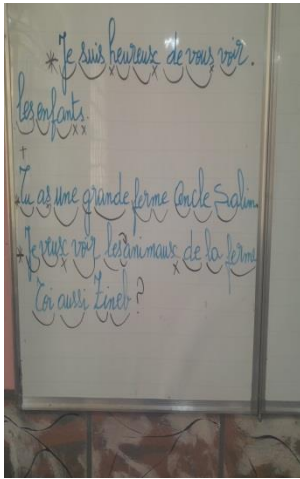 * Je suis heureux de vous voir.
les enfants.
+
Tu as une grande ferme Oncle Salim.
* Je veux voir les animaux de la ferme
Toi aussi Zineb ?